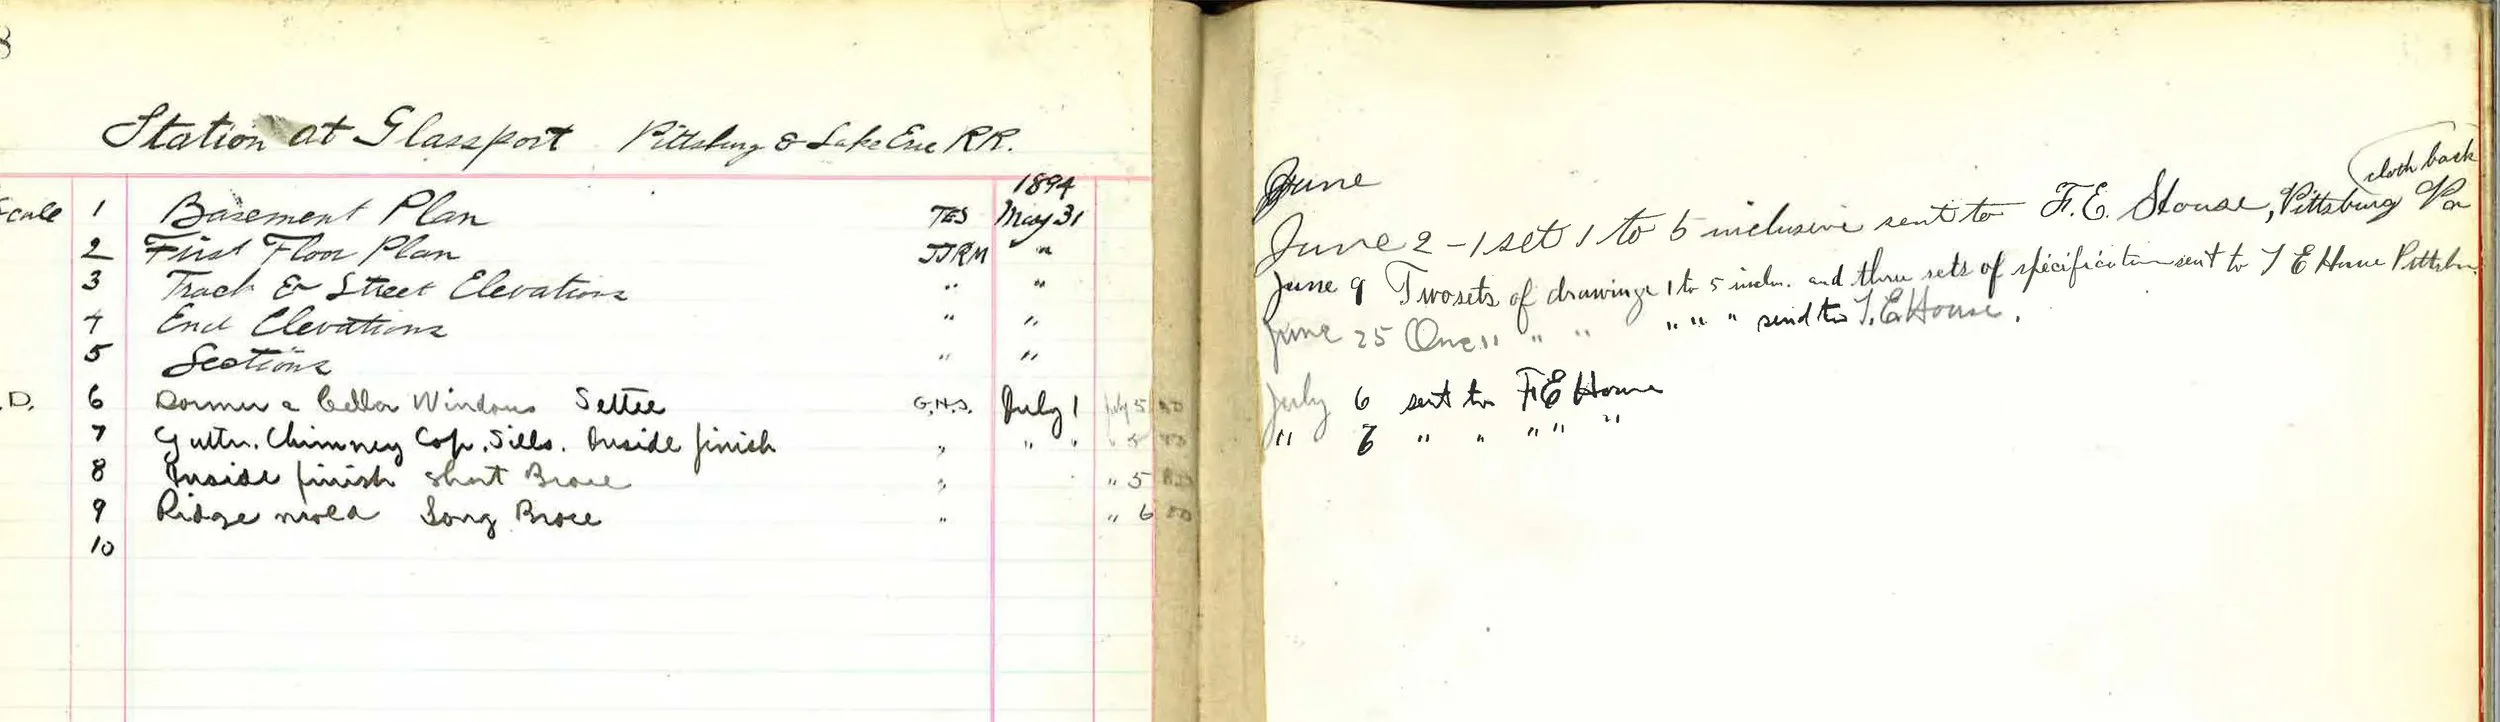 Station at Glassport Pittsburg & Lake Erie RR.
1894
Scale 1 Basement Plan TES May 31
2 First Floor Plan JJRM "
3 Track & Street Elevations " "
4 End Elevations " "
5 Sections " "
.D. 6 Dormer & Cellar Windows Settee G.H.S. July 1 July 5
7 Gutter. Chimney Cap. Sills. Inside finish " " " " 5
8 Inside finish Short Brace " " 5
9 Ridge mold Long Brace " " 6
10
cloth back
June
June 2 - 1 set 1 to 5 inclusive sent to F.E. House, Pittsburg Pa
June 9 Two sets of drawings 1 to 5 inclu. and three sets of specification sent to F E House Pittsbu
June 25 One " " " " " " send to F.E. House.
July 6 sent to F E House
" 6 " " " " "